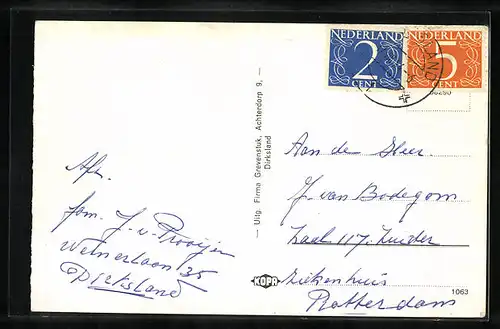 NEDERLAND
2
CENT
NEDERLAND
5
CENT
LAND
Aan de Heer.
J. van Bodegom
Zaal 117. Zuider
Ziekenhuis
Rotterdam
Afz.
fam. J. v. Prooijen
Welnerlaan 35
Dirksland
— Uitg. Firma Grevenstuk, Achterdorp 9, —
Dirksland
KOPA
1063